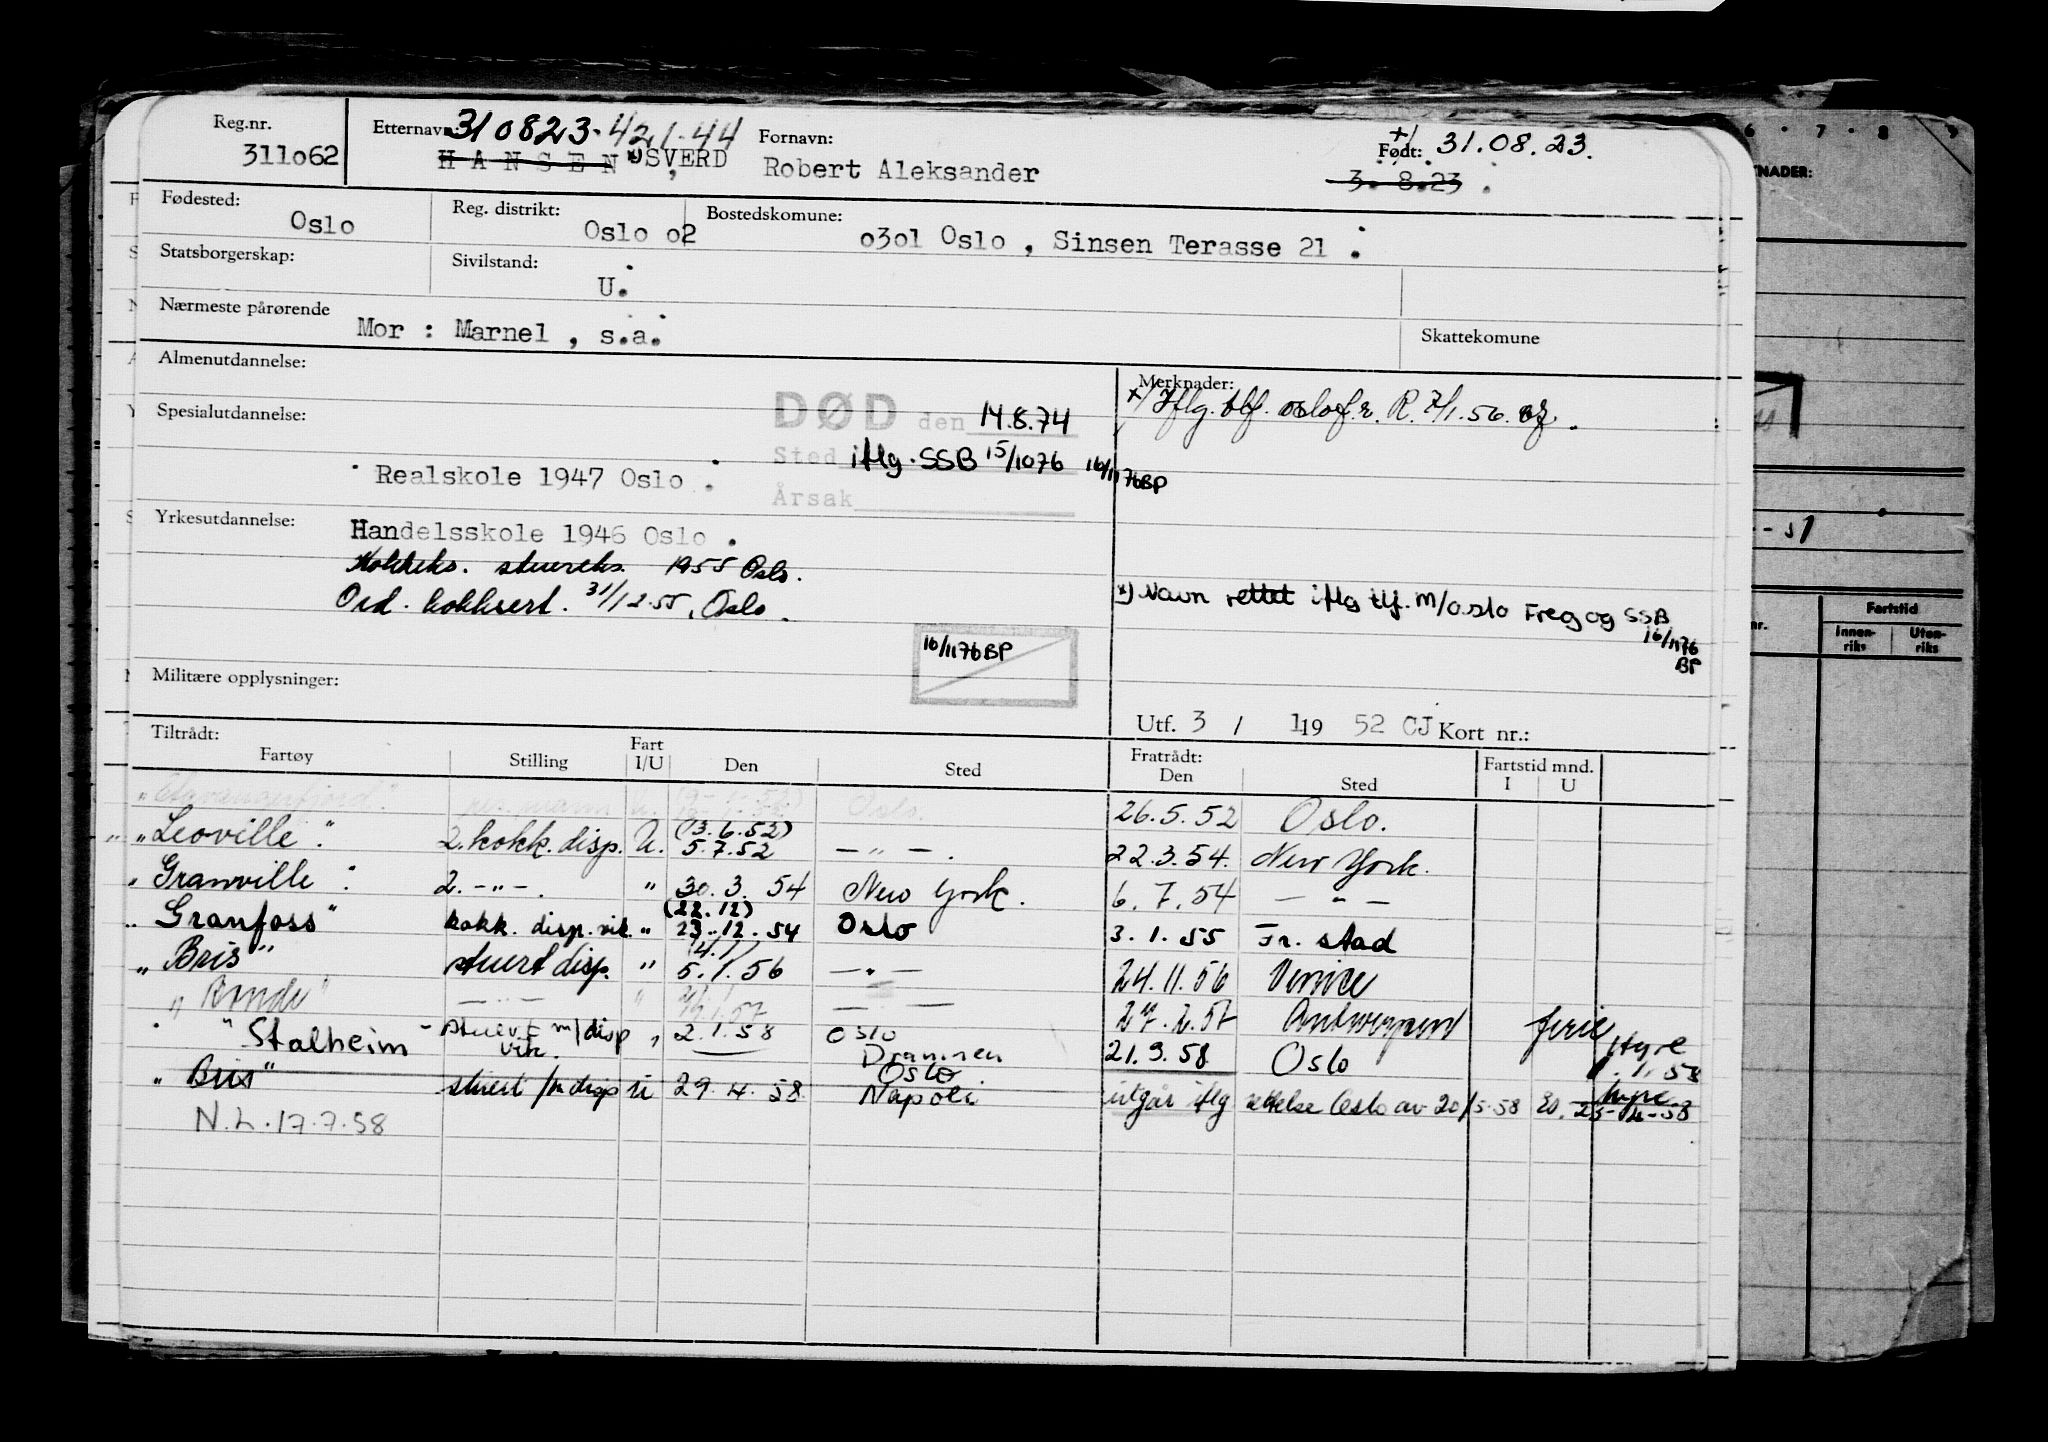 Reg.nr. 311o62
Etternavn: 310823-42144
H A N S E N , x) SVERD
Fornavn: Robert Aleksander
x) Født: 31.08.23.
3. 8.23 .
Fødested: Oslo
Reg. distrikt: Oslo o2
Bostedskomune: o3o1 Oslo , Sinsen Terasse 21 .
Statsborgerskap:
Sivilstand: U.
Nærmeste pårørende Mor : Marnel , s.a.
Skattekomune
Almenutdannelse:
Merknader:
x) Iflg. tlf. Oslo f.r. R. 7/1.56.
DØD den 14.8.74
Spesialutdannelse:
Sted iflg. SSB 15/1076 16/1176BP
Realskole 1947 Oslo .
Årsak
Yrkesutdannelse: Handelsskole 1946 Oslo .
Kokkeks. stuerteks. 1955 Oslo.
Ord. kokksert. 31/12-55, Oslo.
x) Navn rettet iflg tlf. m/Oslo Freg og SSB
16/1176
BP
16/1176BP
Militære opplysninger:
Utf. 3 / 1 19 52 CJ Kort nr.:
Tiltrådt:
Fartøy Stilling Fart I/U Den Sted
Fratrådt:
Den Sted Fartstid mnd. I U
"Stavangerfjord" Oslo. 26.5.52 Oslo.
"Leoville". 2. kokk. disp. U. (3.6.52) 5.7.52 – " – . 22.3.54. New York.
"Granville". 2. – " – . " 30. 3. 54 New York. 6. 7. 54 – " –
"Granfoss" kokk. disp. vik. " (22.12) 23.12.54 Oslo 3.1.55 Fr. stad
"Bris" stuert disp. " 5.1.56 – " – 24.11.56 Venice
"Ronde" – " – " – 27.2.57 Antwerpen ferie
"Stalheim" stuert m/disp vik. " 2.1.58 Oslo Drammen 21.3.58 Oslo Hyre
"Bris" stuert m/disp U 29.4.58 Oslo Napoli utgår iflg rettelse Oslo av 20/5-58 hyre 25-4-58
N.L. 17.7.58
6 · 7 · 8 9
KNADER:
--51
nr.
Fartstid
Innen-riks
Uten-riks